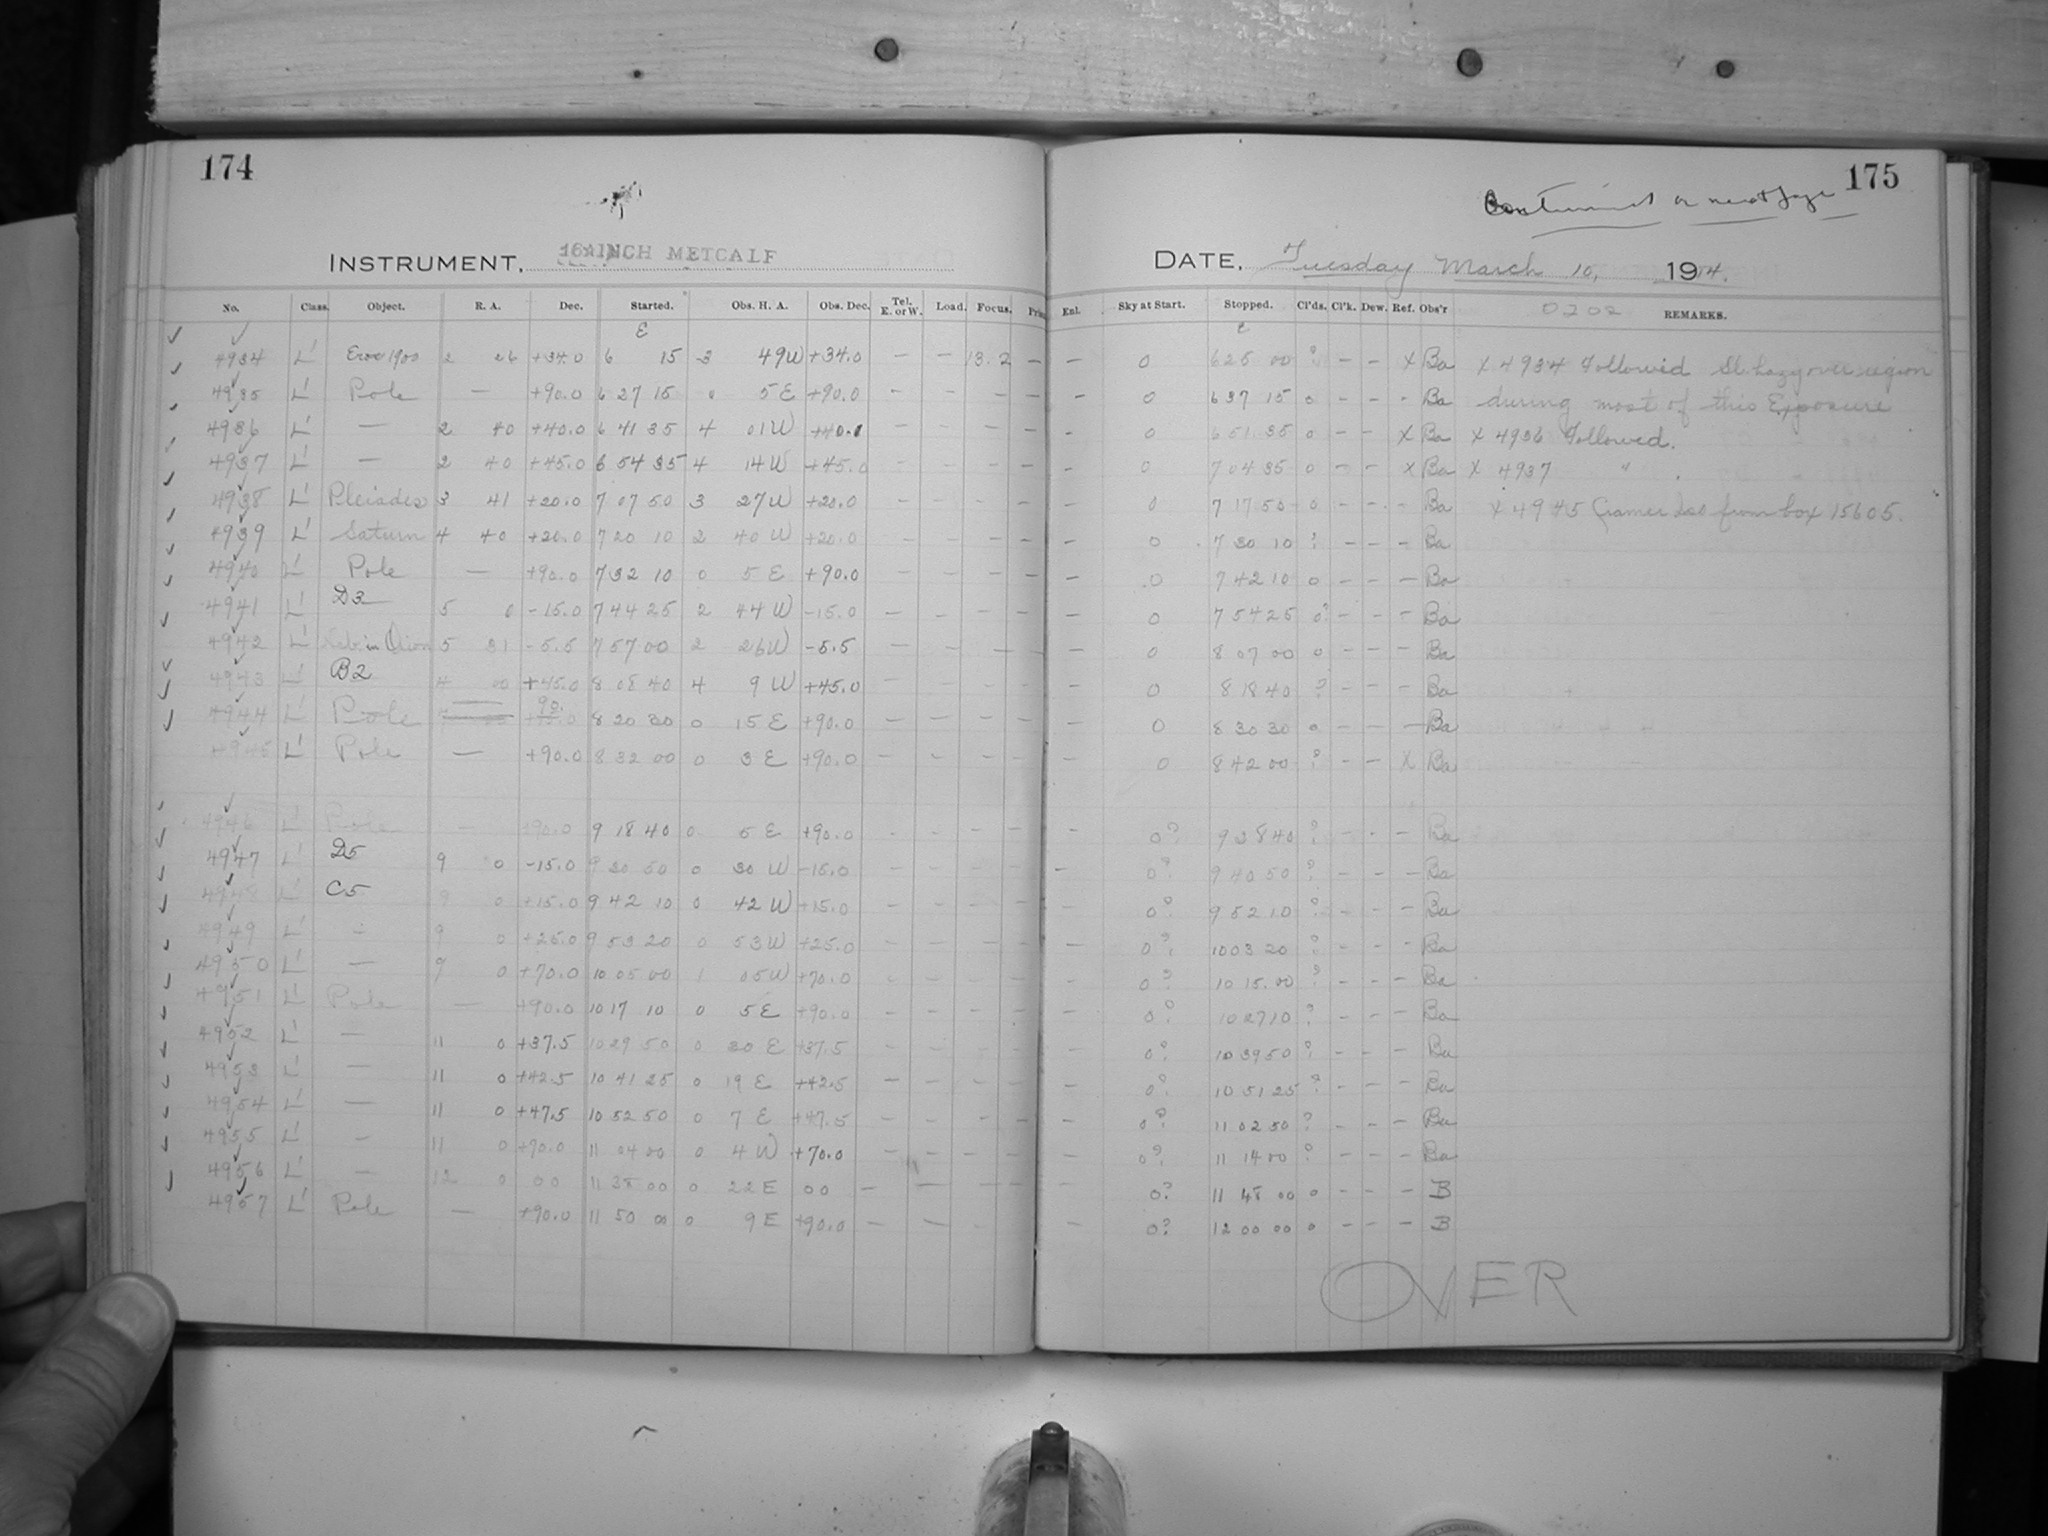 174
175
Continued on next page
INSTRUMENT, 16 INCH METCALF
DATE, Tuesday March 10, 1914.
No. Class. Object. R. A. Dec. Started. Obs. H. A. Obs. Dec. Tel. E. or W. Load. Focus. Enl. Sky at Start. Stopped. Cl'ds. Cl'k. Dew. Ref. Obs'r REMARKS.
E E
4934 L' Eros 1900 2 26 +34.0 6 15 3 49W +34.0 — — 13.2 — — 0 6 25 00 ? — — X Ba X 4934 Followed Sl. hazy over region
4935 L' Pole — +90.0 6 27 15 0 5 E +90.0 — — — — — 0 6 37 15 0 — — - Ba during most of this Exposure
4936 L' — 2 40 +40.0 6 41 35 4 01W +40.0 — — — — — 0 6 51 35 0 — — X Ba X 4936 Followed.
4937 L' — 2 40 +45.0 6 54 35 4 14W +45.0 — — — — — 0 7 04 35 0 — — X Ba X 4937 "
4938 L' Pleiades 3 41 +20.0 7 07 50 3 27W +20.0 — — — — — 0 7 17 50 0 — — - Ba X 4945 Cramer Iso from box 15605.
4939 L' Saturn 4 40 +20.0 7 20 10 2 40 W +20.0 — — — — — 0 7 30 10 ? — — — Ba
4940 L' Pole — +90.0 7 32 10 0 5 E +90.0 — — — — — 0 7 42 10 0 — — — Ba
4941 L' D3 5 0 -15.0 7 44 25 2 44W -15.0 — — — — — 0 7 54 25 0? — — — Ba
4942 L' Neb. in Orion 5 31 -5.5 7 57 00 2 26W -5.5 — — — — — 0 8 07 00 0 — — — Ba
4943 L' B2 4 00 +45.0 8 08 40 4 9 W +45.0 — — — — — 0 8 18 40 ? — — — Ba
4944 L' Pole — 90. 8 20 30 0 15 E +90.0 — — — — — 0 8 30 30 0 — — — Ba
4945 L' Pole — +90.0 8 32 00 0 3 E +90.0 — — — — — 0 8 42 00 ? — — X Ba
4946 L' Pole — +90.0 9 18 40 0 5 E +90.0 — — — — — 0? 9 28 40 ? — — — Ba
4947 L' D5 9 0 -15.0 9 30 50 0 30 W -15.0 — — — — — 0? 9 40 50 ? — — — Ba
4948 L' C5 9 0 +15.0 9 42 10 0 42 W +15.0 — — — — — 0? 9 52 10 ? — — — Ba
4949 L' — 9 0 +25.0 9 53 20 0 53W +25.0 — — — — — 0? 10 03 20 ? — — — Ba
4950 L' — 9 0 +70.0 10 05 00 1 05W +70.0 — — — — — 0? 10 15 00 ? — — — Ba
4951 L' Pole — +90.0 10 17 10 0 5 E +90.0 — — — — — 0? 10 27 10 ? — — — Ba
4952 L' — 11 0 +37.5 10 29 50 0 30 E +37.5 — — — — — 0? 10 39 50 ? — — — Ba
4953 L' — 11 0 +42.5 10 41 25 0 19 E +42.5 — — — — — 0? 10 51 25 ? — — — Ba
4954 L' — 11 0 +47.5 10 52 50 0 7 E +47.5 — — — — — 0? 11 02 50 ? — — — Ba
4955 L' — 11 0 +70.0 11 04 00 0 4 W +70.0 — — — — — 0? 11 14 00 ? — — — Ba
4956 L' — 12 0 00 11 38 00 0 22 E 00 — — — — — 0? 11 48 00 0 — — — B
4957 L' Pole — +90.0 11 50 00 0 9 E +90.0 — — — 0? 12 00 00 0 — — — B
OVER